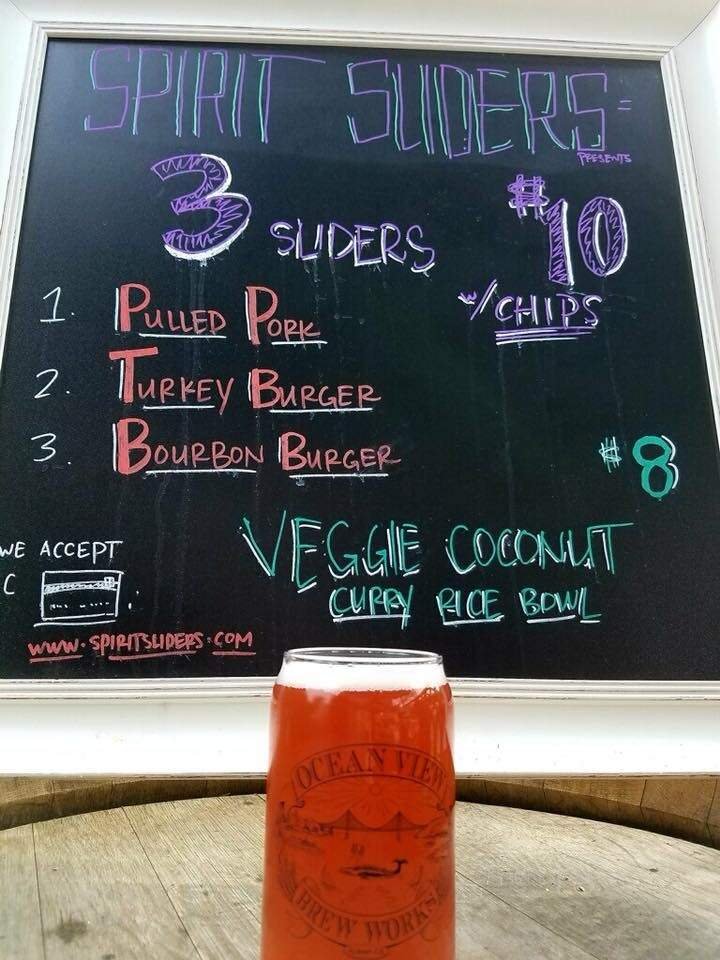 SPIRIT SLIDERS =
PRESENTS
3 SLIDERS
$10
W/ CHIPS
1. PULLED PORK
2. TURKEY BURGER
3. BOURBON BURGER
$8
VEGGIE COCONUT
CURRY RICE BOWL
WE ACCEPT
C
WWW.SPIRITSLIDERS.COM
OCEAN VIEW
BREW WORKS